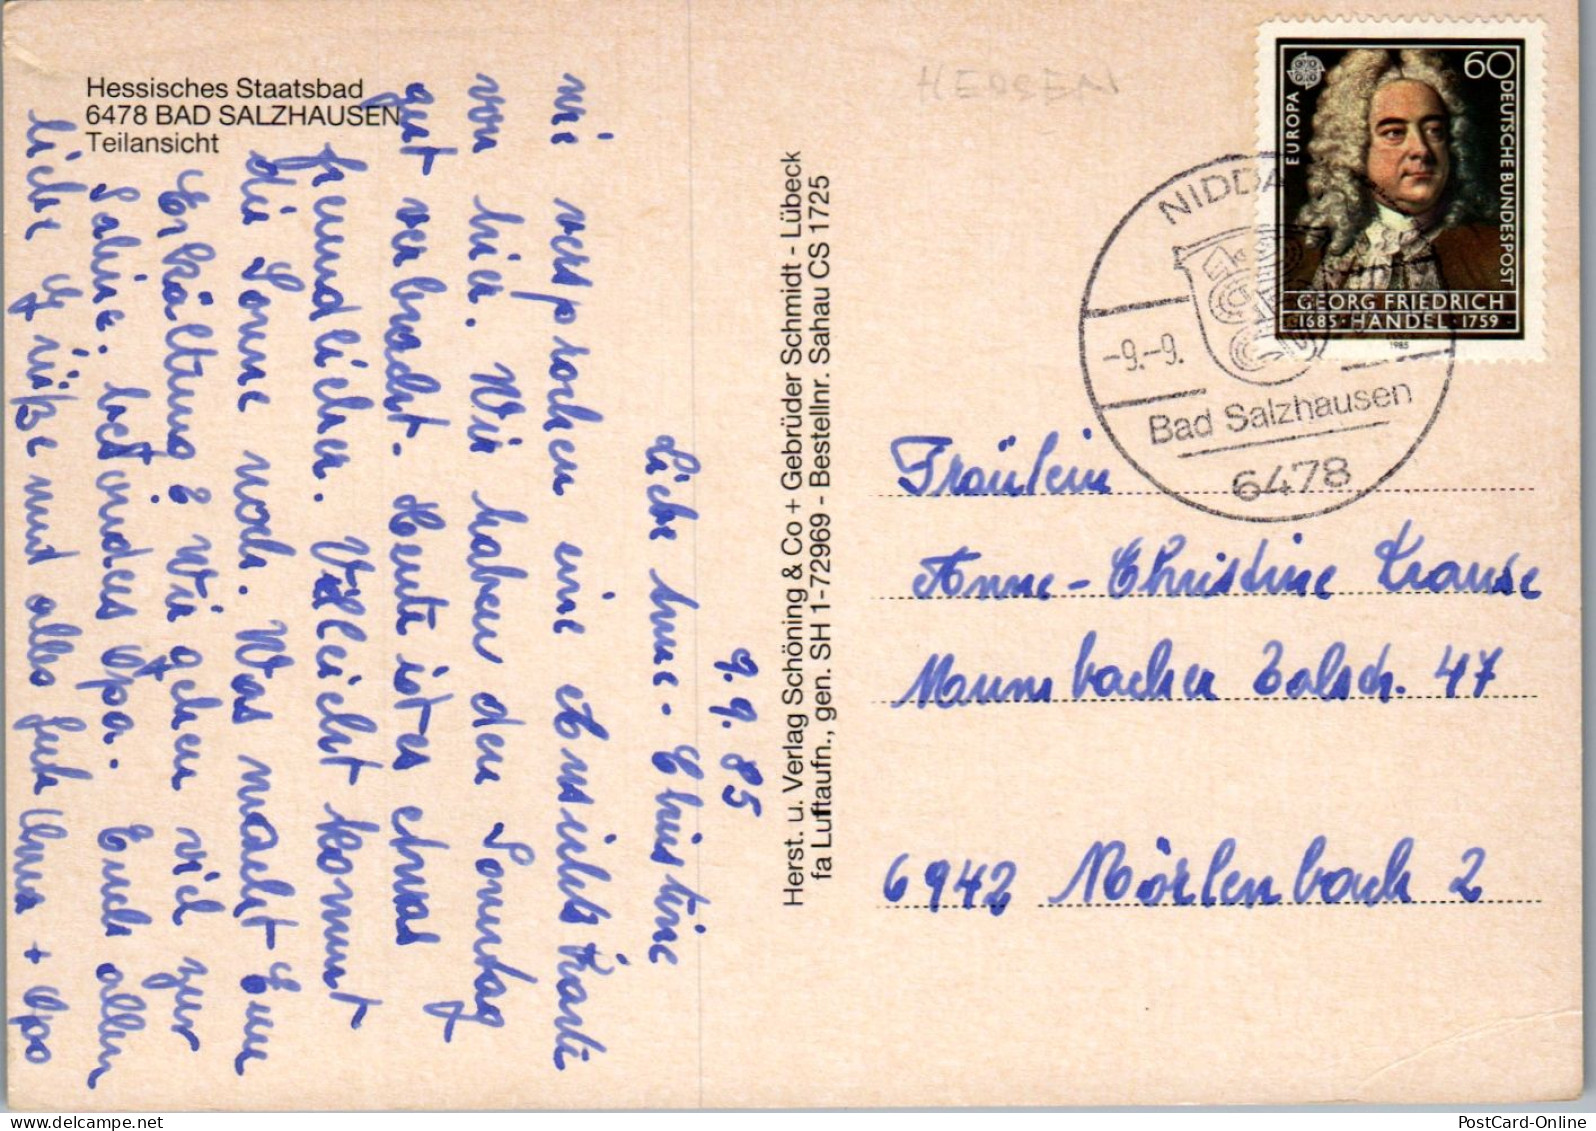 Hessisches Staatsbad
6478 BAD SALZHAUSEN
Teilansicht
9. 9. 85
Liebe Anne-Christine
wie versprochen eine Ansichtskarte
von hier. Wir haben den Sonntag
gut verbracht. Heute ist es etwas
freundlicher. Vielleicht kommt
die Sonne noch. Was macht Eure
Erkältung? Wir gehen viel zur
Saline. besonders Opa. Euch allen
liebe Grüße und alles Gute Oma + Opa
Herst. u. Verlag Schöning & Co + Gebrüder Schmidt - Lübeck
fa Luftaufn., gen. SH 1-72969 - Bestellnr. Sahau CS 1725
HESSEN
EUROPA
60
DEUTSCHE BUNDESPOST
GEORG FRIEDRICH
1685 · HÄNDEL · 1759
1985
NIDDA
-9.-9.
Bad Salzhausen
6478
Fräulein
Anne-Christine Krause
Mumbacher Talstr. 47
6942 Mörlenbach 2
PostCard-Online
www.delcampe.net